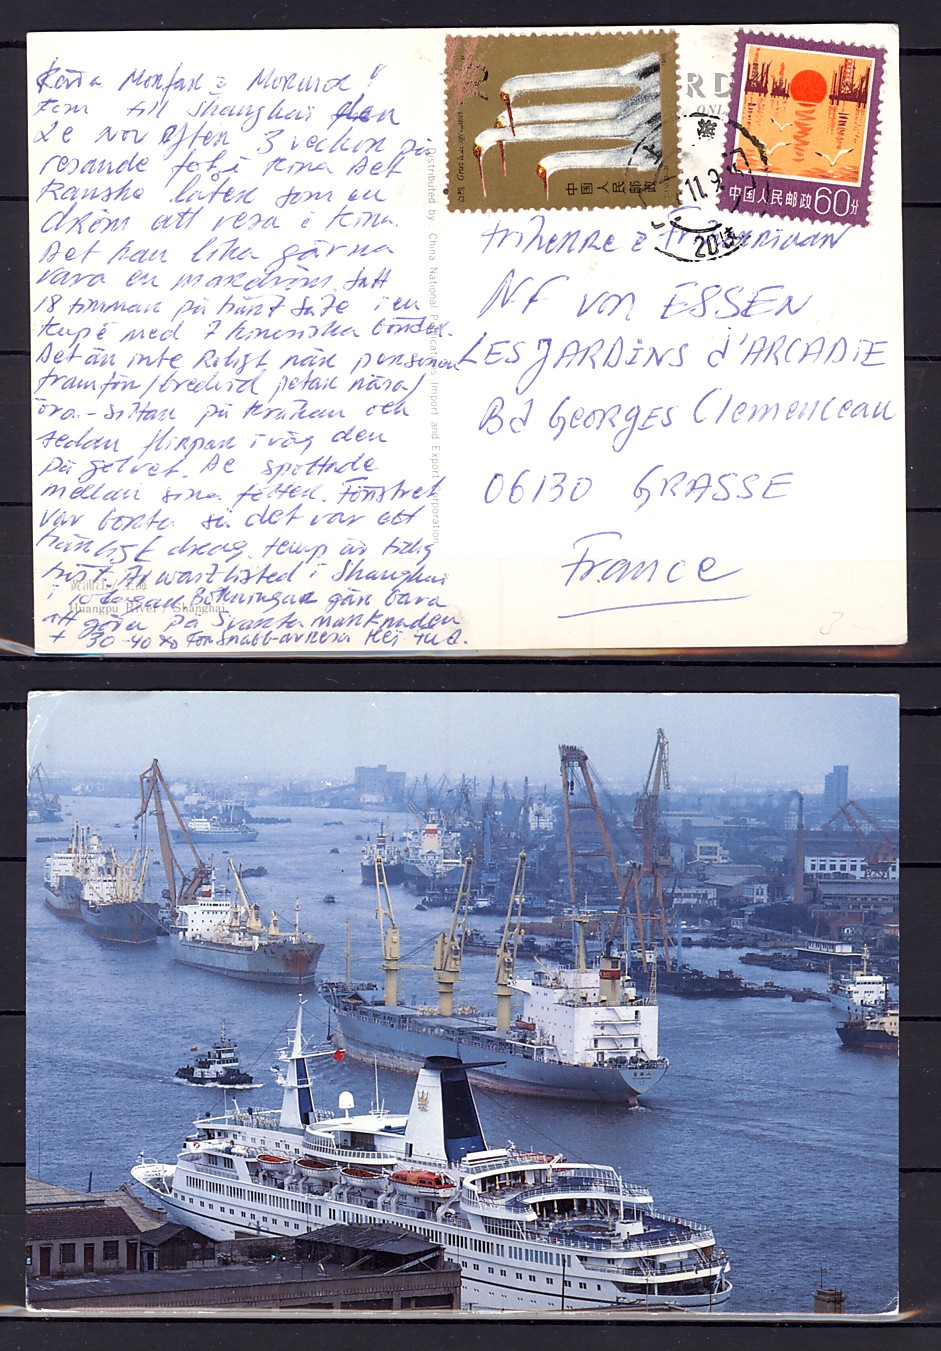 Kära Morfar & Mormor!
Kom till Shanghai den
2e nov efter 3 veckor på
resande fot i Kina Det
kanske låter som en
dröm att resa i Kina.
Det kan lika gärna
vara en mardröm. Satt
18 timmar på hårt säte i en
kupé med 7 kinesiska bönder.
Det är inte roligt när personen
framför/bredvid petar näsa/
öra - sittar på kråkan och
sedan flirpar iväg den
på golvet. De spottade
mellan sina fötter. Fönstret
var borta så det var ett
drag. temp är
Är waitlisted i Shanghai
i 10 dagar. Bokningar går bara
att göra på Svarta marknaden
+ 30-40 för snabb avresa Hej
黄浦江/上海
Huangpu River / Shanghai
Distributed by: China National Publications Import and Export Corporation
RD
白鹤 Grus leucogeranus
中国人民邮政
中国人民邮政 60分
上海
11.9
20
Friherre & Friherrinnan
NF von ESSEN
LES JARDINS d'ARCADIE
Bd GEORGES Clemenceau
06130 GRASSE
France
3-